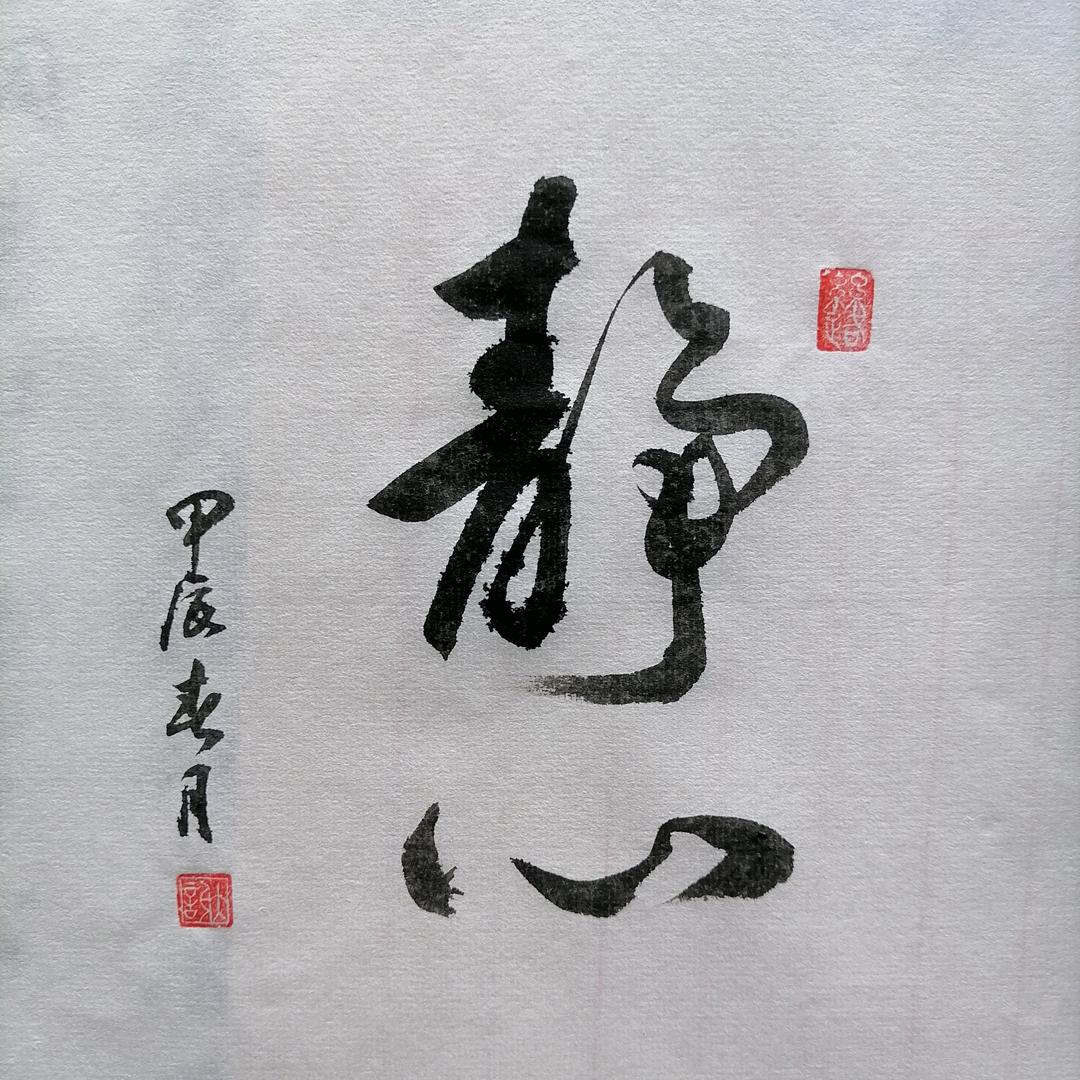 靜心
甲辰春月